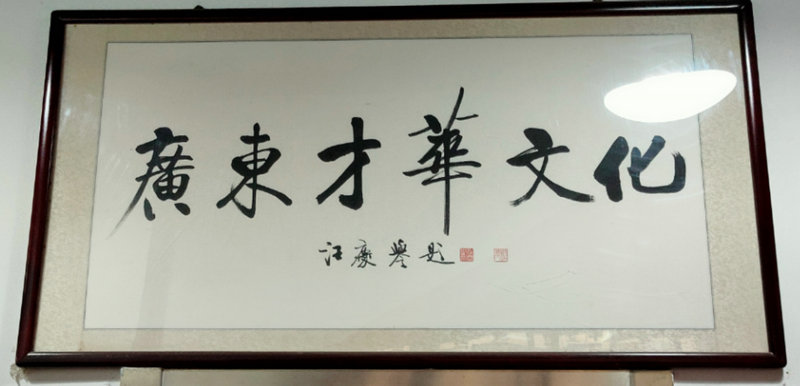 廣東才華文化
汪慶譽題